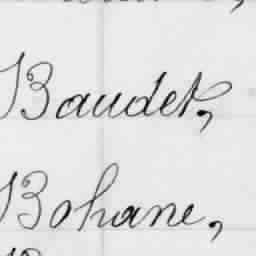 Baudet,
Bohane,